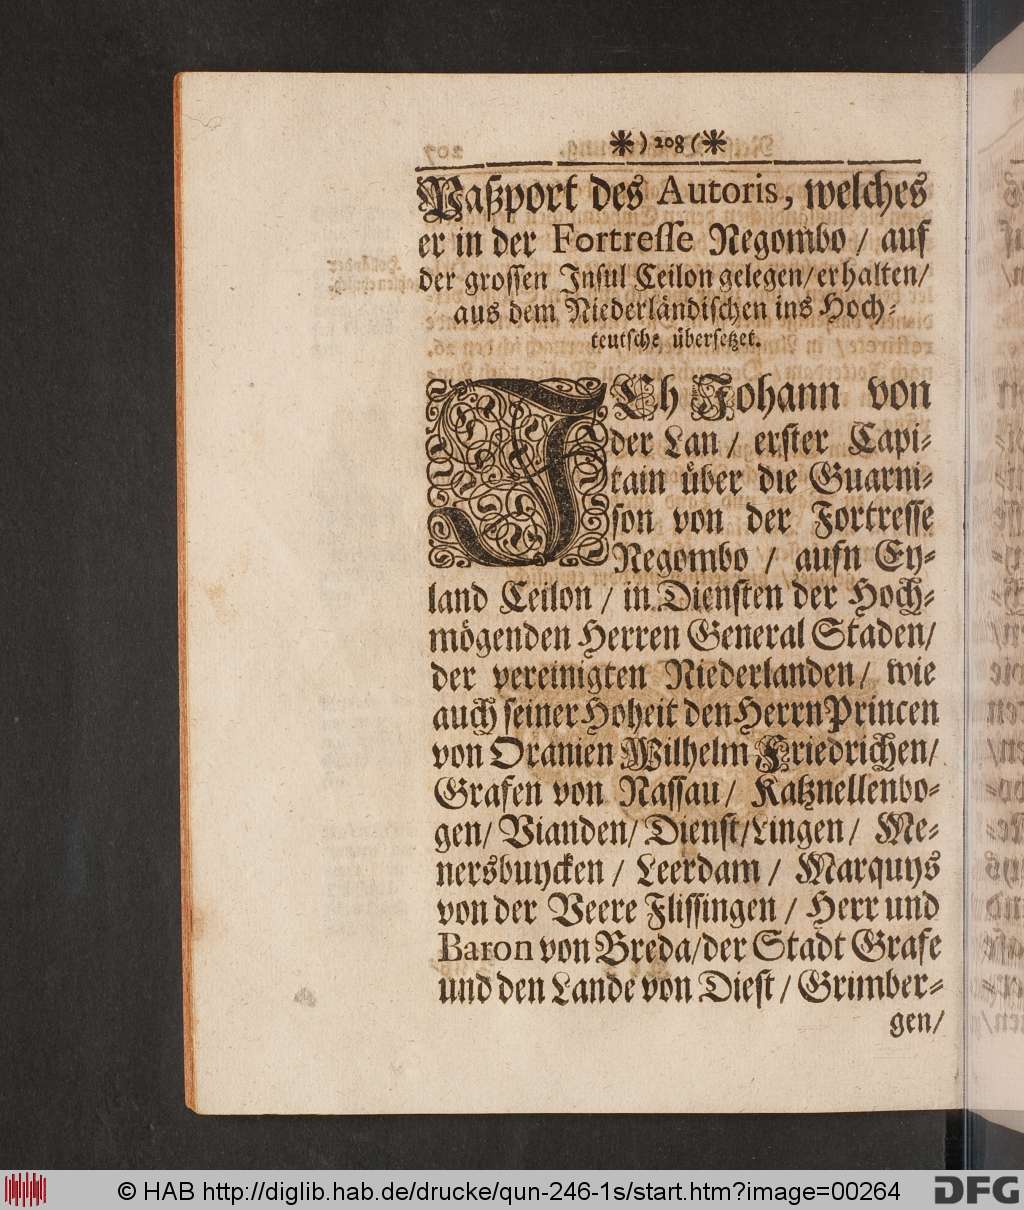 *) 208 (*
Paßport des Autoris, welches
er in der Fortresse Negombo / auf
der grossen Insul Ceilon gelegen/ erhalten/
aus dem Niederländischen ins Hoch-
teutsche übersetzet.
ICh Johann von
der Lan / erster Capi-
tain über die Guarni-
son von der Fortresse
Negombo / aufn Ey-
land Ceilon / in Diensten der Hoch-
mögenden Herren General Staden/
der vereinigten Niederlanden/ wie
auch seiner Hoheit den Herrn Princen
von Oranien Wilhelm Friedrichen/
Grafen von Nassau/ Katznellenbo-
gen/ Vianden/ Dienst/Lingen/ Me-
nersbuycken / Leerdam / Marquys
von der Veere Flissingen / Herr und
Baron von Breda/der Stadt Grafe
und den Lande von Diest / Grimber-
gen/
© HAB http://diglib.hab.de/drucke/qun-246-1s/start.htm?image=00264
DFG